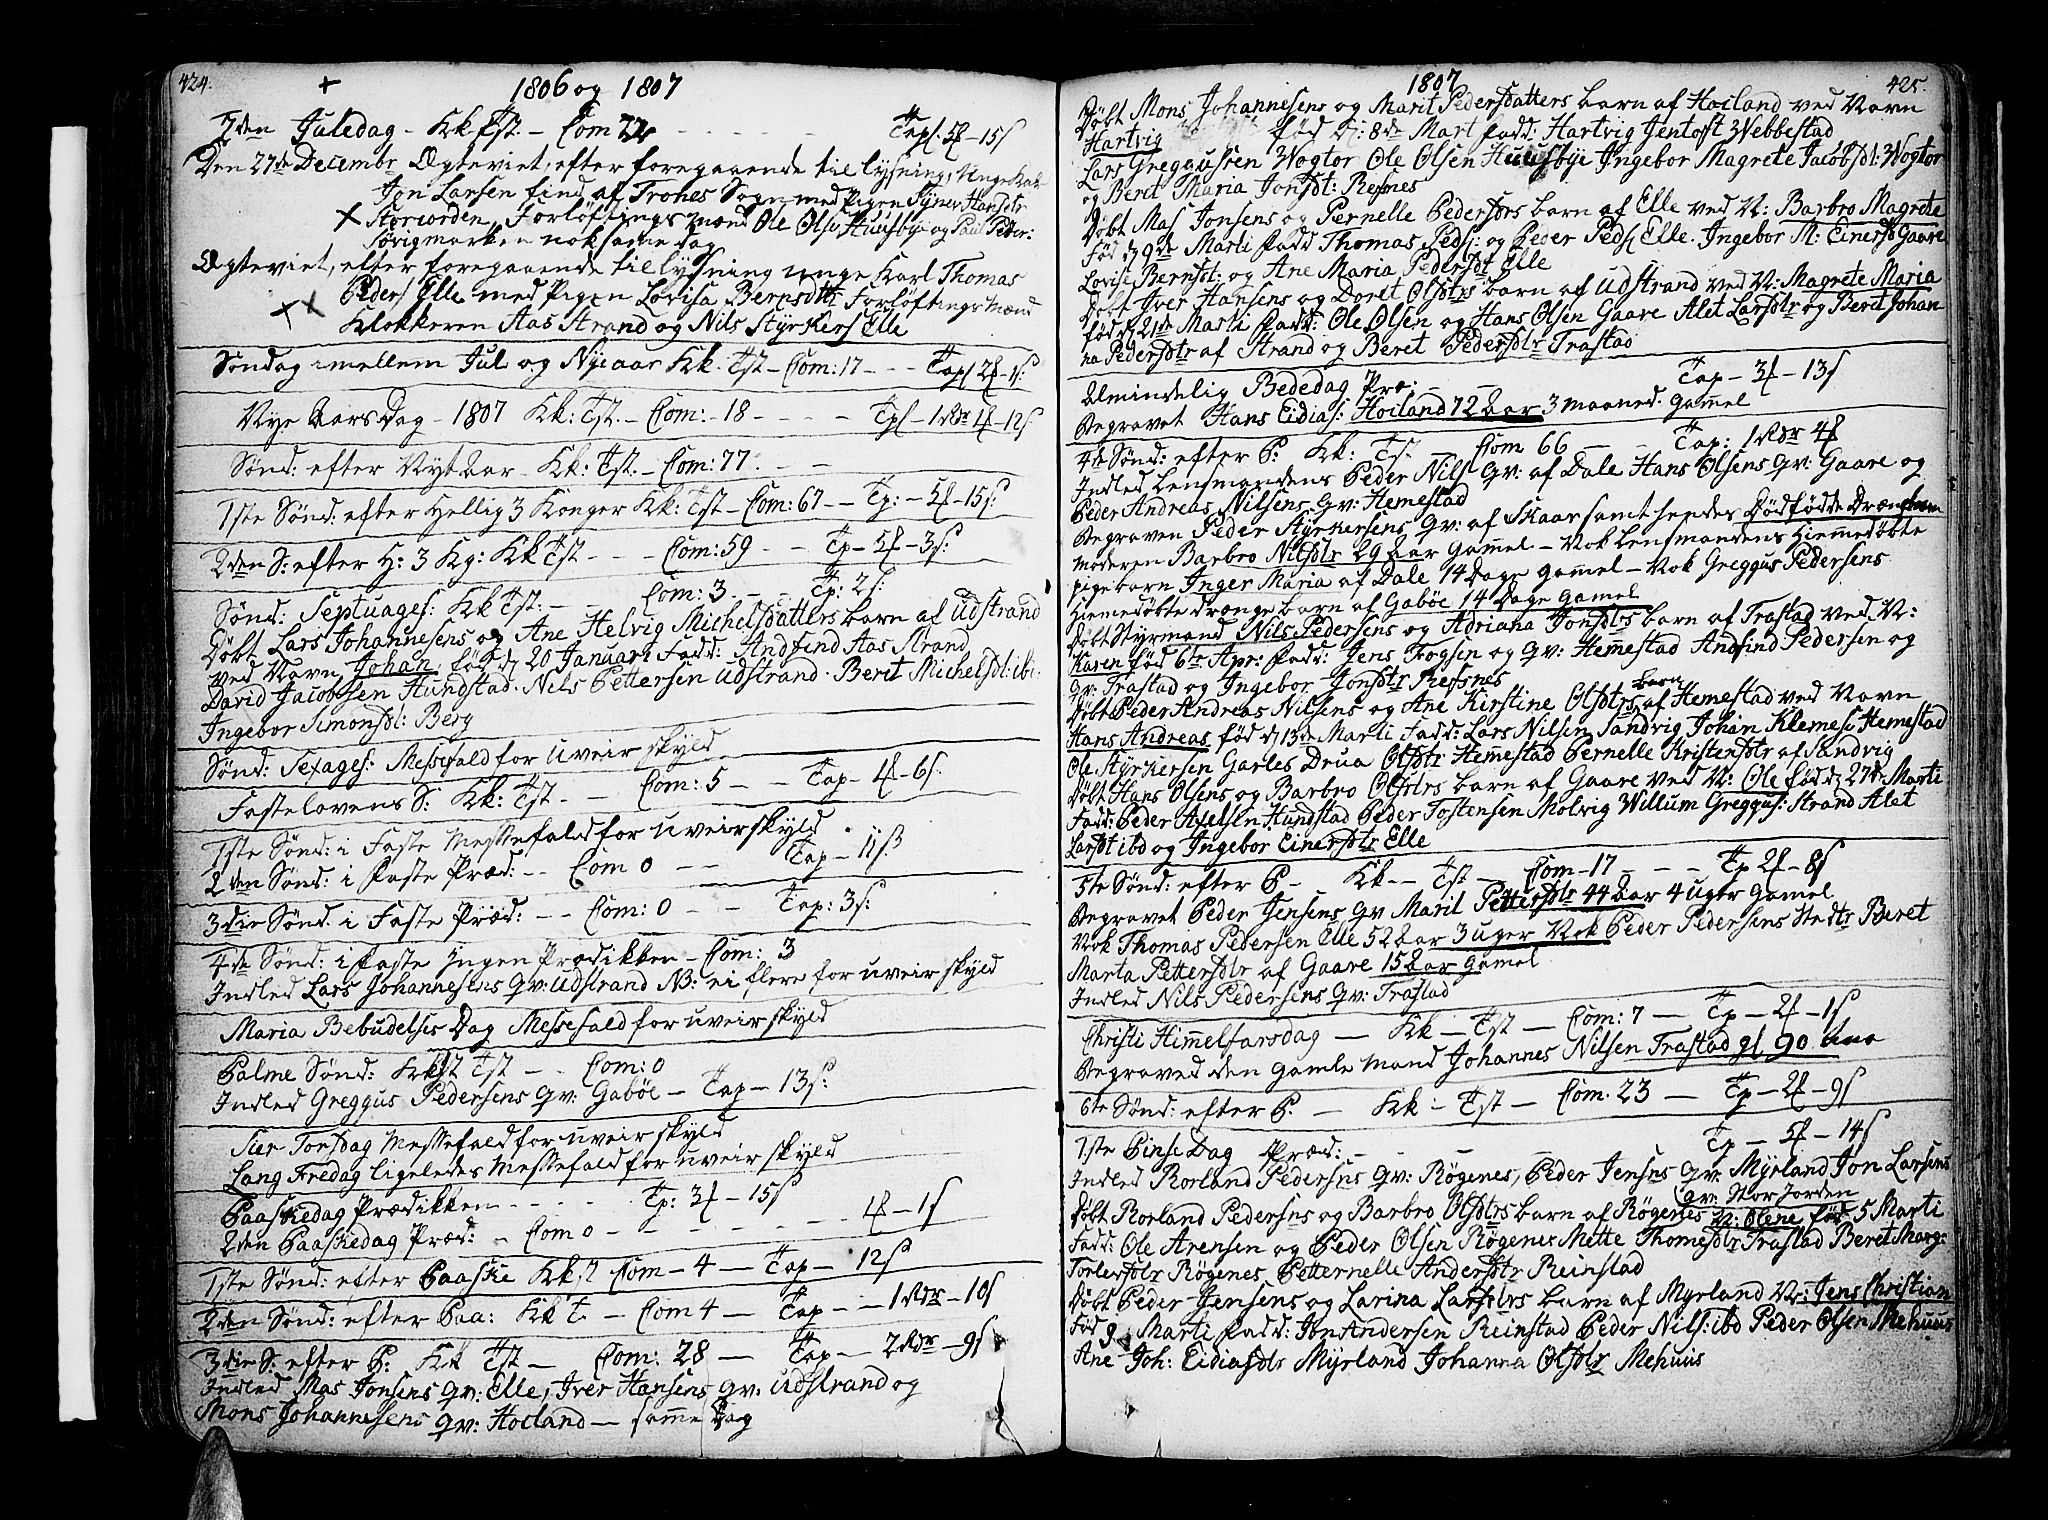 424.
1806 og 1807
2den Juledag - Kk Tst. - Com 72 - - - - Tap 5# - 15s
Den 27de Decembr Ægteviet, efter foregaaende til lysning, Unge Karl
Jon Larsen find af Trohes Sogn med Pigen Hansdtr
Storiorden, Forløftingsmænd Ole Ols: Huusbye og Paul Peder:
nok samme dag
Ægteviet, efter foregaaende tillysning unge Karl Thomas
Peders Elle med Pigen Lovisa Berns dttr Forløftings Mænd
Klokkeren Aas Strand og Nils Styrkers Elle
Søndag imellem Jul og Nyeaar Kk. Tst - Com: 17 - - - Tap 2# - 1s:
Nye Aars Dag - 1807 Kk: Tst. - Com: - 18 - - - - Tp - 1 Rdr 4# - 12s
Sønd: efter Nyt Aar - Kk: Tst. - Com: 77. - -
1ste Sønd: efter Hellig 3 Konger Kk: Tst - Com: 67 - - Tp: - 5# - 15s:
2den S: efter H: 3 Kg: Kk Tst - - - Com: 59 - - Tp - 5# - 3s:
Sønd: Septuages: Kk Tst: - Com: 3 - - Tp: 2s:
Døbt Lars Johannesens og Ane Helvig Michelsdatters barn af Udstrand
ved Navn Johan, fød d 20 Januari Fadd: Andfind Aas Strand
David Jacobsen Hundstad. Nils Pettersen Udstrand. Berit Michelsdt: ibi:
Ingebor Simonsdt: Berg
Sønd: Sexages: Messefald for uveir skyld
Fastelavens S: Kk: Tst. - Com: 5 - Tap - 4# - 6s:
1ste Sønd: i Faste Messefald for uveir skyld
2den Sønd: i Faste Præd: - - Com 0 - - Tap - 11s:
3die Sønd. i Faste Præd: - - Com: 0 - - Tap: 3s:
4de Sønd: i Faste Ingen Prædikken - Com: 3
Indled Lars Johannesens Qv: Udstrand NB: ei flere for uveir skyld
Maria Bebudelses Dag Messefald for uveir skyld
Palme Sønd: Kk Tst - - Com: 0
Indled Greggus Pedersens Qv: Gabøe - Tap - 13s:
Sier Torsdag Messefald for uveir skyld
Lang Fredag ligeledes Messefald for uveir skyld
Paaskedag Prædikken - - - Tp: 3# - 15s
2den Paaskedag Præd: - Com 0 - - - - - - - 4# - 1s
1ste Sønd: efter Paaske Kkst Com - 4 - Tap - 12s
2den Sønd: efter Paa: Kk T. - Com 4 - Tap - - 1 Rdr - 10s
3die S: efter P: Kk Tst - Com: 28 - Tap - 2 Rdr - 9s
Indled Mas Jonsens Qv: Elle, Iver Hansens Qv: Udstrand og
Mons Johannesens Qv: Hoiland - samme Dag
1807
425.
Døbt Mons Johannesens og Marit Pedersdatters barn af Hoiland ved Navn
Hartvig fød d: 8de Mart fadd: Hartvig Jentoft Webbestad
Lars Greggussen Wogtor Ole Olsen Huusbye Ingebor Magrete Jacobsdt: Wogtor
og Berit Maria Jonsdt: Resnes
Døbt Mas Jonsens og Pernelle Pedersdrs barn af Elle ved N: Barbro Magrete
Fød d 9de Marti Fadd Thomas Peds: og Peder Peds Elle. Ingebor M: Einersd Gaare
Lovise Bernsdt: og Ane Maria Pedersdt Elle
Døbt Iver Hansens og Doret Olsdtrs barn af Udstrand ved N: Magrete Maria
fød d 21de Marti Fadd: Ole Olsen og Hans Olsen Gaare Alet Larsdtr og Berit Johan
na Pedersdtr af Strand og Beret Pedersdtr Trastad
Almindelig Bededag Præ: - - Tap - 3# - 13s
Begravet Hans Eidias: Hoiland 72 Aar 3 maaned. Gammel
4de Sønd: efter P: Kk: Tst. - Com 66 - - Tap: 1 Rdr 4#
Indled Lensmandens Peder Nils Qv: af Dale Hans Olsens Qv: Gaare og
Peder Andreas Nilsens Qv: Hemestad
Begraven Peder Styrkersens Qv: af Skaar samt hendes Dødfødde Drængbarn
moderen Barbro Nilsdtr 29 Aar Gammel - Nok Lensmandens Hiemedøbte
pigebarn Inger Maria af Dale 14 Dage gammel - Nok Greggus Pedersens
Hiemedøbte drænge barn af Gabøe 14 Dage Gamel
Døbt Styrmand Nils Pedersens og Adriana Jonsdtrs barn af Trastad ved N:
Karen fød 6te Apr: Fadd: Jens Fogsen og Qv: Hemestad Andfind Pedersen og
Qv: Trastad og Ingebor Jonsdtr Resnes
Døbt Peder Andreas Nilsens og Ane Kirstine Olsdtrs barn af Hemestad ved Navn
Hans Andreas fød d 13de Marti Fadd: Lars Nilsen Sandvig Johan Klemes: Hemestad
Ole Styrkersen Garles Drua Olsdtr Hemmestad Pernelle Kristensdtr af Sandvig
Døbt Hans Olsens og Barbro Olsdtrs barn af Gaare ved N: Ole fød d 27de Marti
Fadd: Peder Axelsen Hundstad Peder Tostensen Molvig Willum Greggus: Strand Alet
Larsdt ibd og Ingebor Einersdtr Elle
5te Sønd: efter P - Kk - - Tst - Com - 17 - - - Tp 2# - 8s
Begravet Peder Jensens Qv Marit Pettersdtr 44 Aar 4 uger Gamel
Nok Thomas Pedersen Elle 52 Aar 3 uger Nok Peder Pedersens Stedtr Beret
Marta Pettersdtr af Gaare 15 Aar gamel
Indled Nils Pedersens Qv: Trastad
Christi Himmelfarsdag - Kk - Tst - Com: 7 - Tp - 2# - 1s
Begraved den Gamle Mand Johannes Nilsen Trastad gl 90 Aar
6te Sønd: efter P. - Kk - Tst - Com: 23 - Tp - 2# - 9s
1ste Pinse Dag Præd: - - - - - Tp - 5# - 14s
Indled Rorland Pedersns Qv: Røgenes, Peder Jensns Qv: Myrland Jon Larsens
Qv: Stor Jorden
Døbt Rorland Pedersns og Barbro Olsdtrs barn af Røgenes N: Olene fød 5 Marti
Fadd: Ole Arensen og Peder Olsen Røgenes Mette Thomesdtr Trastad Beret Marg:
Torlersdtr Røgenes Petternelle Andersdtr Reinstad
Døbt Peder Jensens og Larina Larsdtrs barn af Myrland N: Jens Christian
Fød 9 Marti fadd: Jon Andersen Reinstad Peder Nils: ibd Peder Olsen Mehuus
Ane Joh: Eidiasdtr Myrland Johanna Olsdtr Mehuus